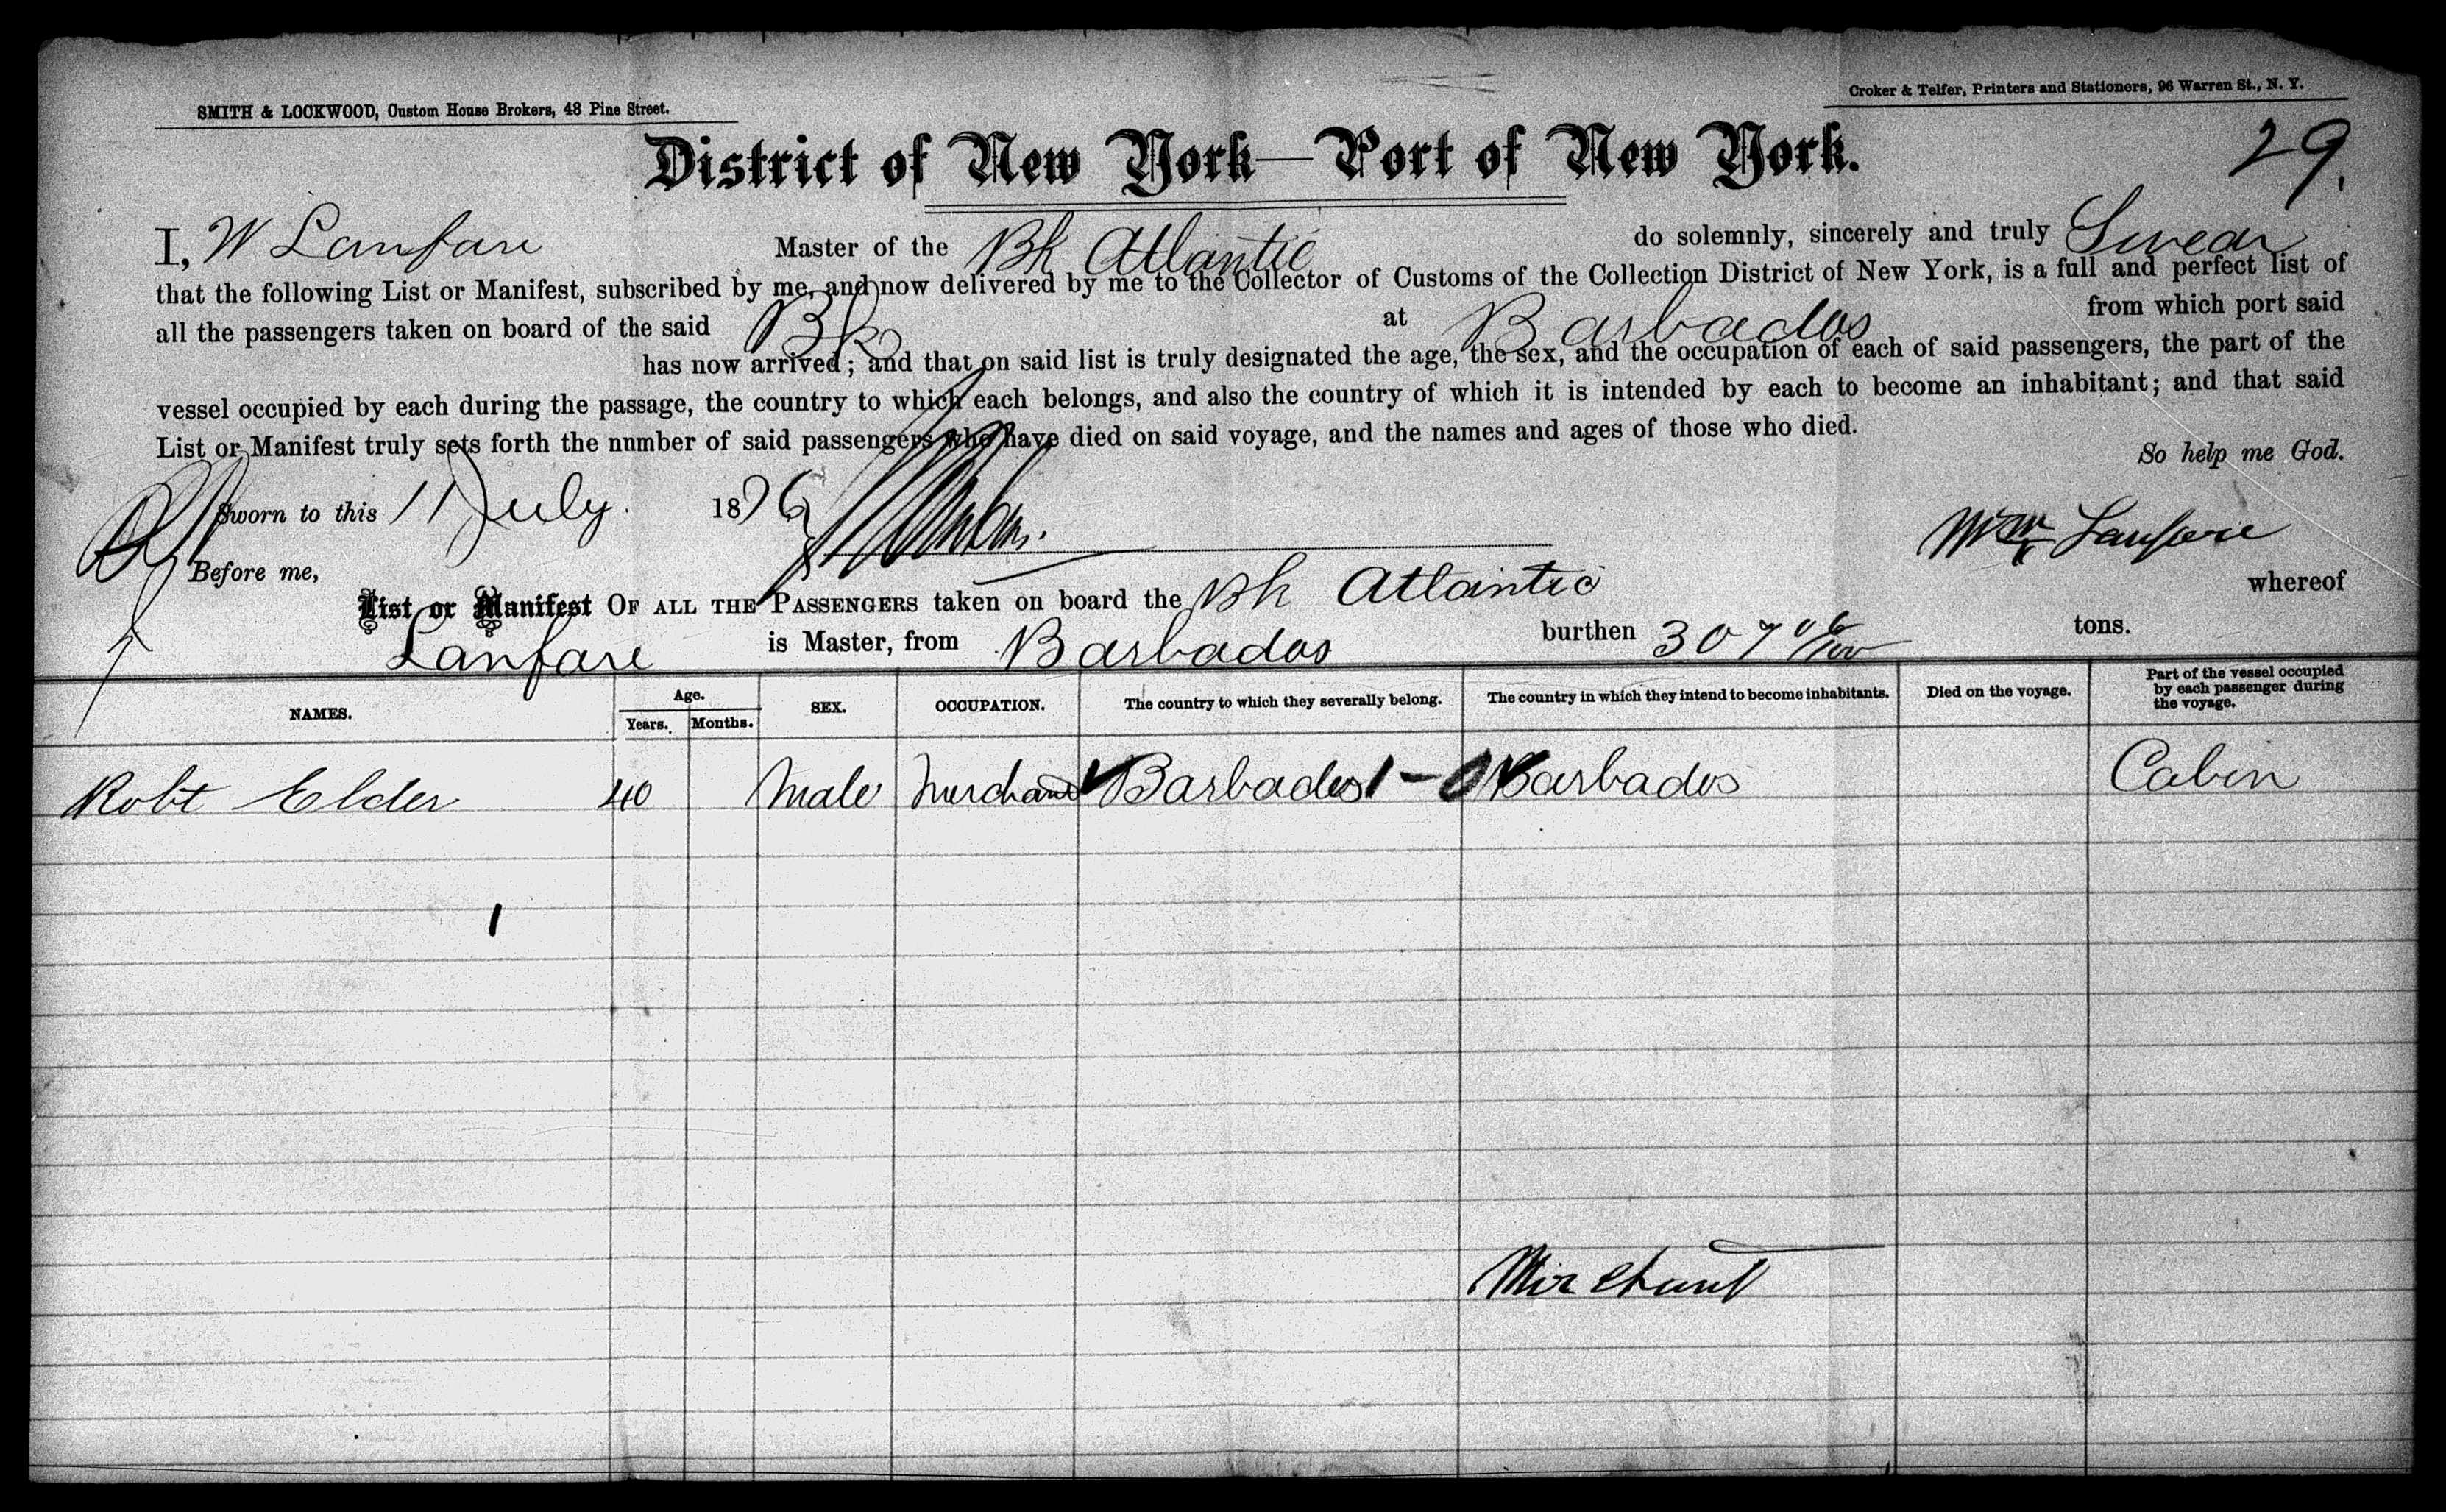 SMITH & LOCKWOOD, Custom House Brokers, 48 Pine Street.
Croker & Telfer, Printers and Stationers, 96 Warren St., N. Y.
District of New York—Port of New York.
29.
I, W Lanfare Master of the Bk Atlantic do solemnly, sincerely and truly Swear
that the following List or Manifest, subscribed by me, and now delivered by me to the Collector of Customs of the Collection District of New York, is a full and perfect list of
all the passengers taken on board of the said Bk at Barbados from which port said
has now arrived; and that on said list is truly designated the age, the sex, and the occupation of each of said passengers, the part of the
vessel occupied by each during the passage, the country to which each belongs, and also the country of which it is intended by each to become an inhabitant; and that said
List or Manifest truly sets forth the nnmber of said passengers who have died on said voyage, and the names and ages of those who died.
So help me God.
Sworn to this 11 July 1876
Wm Lanfare
Before me,
List or Manifest OF ALL THE PASSENGERS taken on board the Bk Atlantic whereof
Lanfare is Master, from Barbados burthen 307 06/100 tons.
NAMES. Age. Years. Months. SEX. OCCUPATION. The country to which they severally belong. The country in which they intend to become inhabitants. Died on the voyage. Part of the vessel occupied by each passenger during the voyage.
Robt Elder 40 Male Merchant Barbados 1-0 Barbados Cabin
1
Merchant